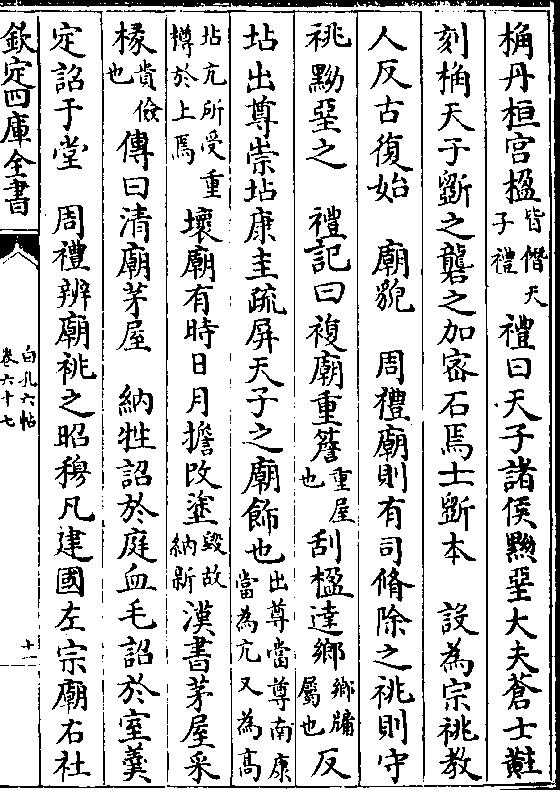 桷丹桓宫楹皆僭天子禮禮曰天子諸侯黝堊大夫蒼士黈
刻桷天子斵之礱之加密石焉士斵本　設為宗祧教
人反古復始　廟貌　周禮廟則有司脩除之祧則守
祧黝堊之　禮記曰複廟重簷重屋也刮楹達鄉鄉牖屬也反
坫出尊崇坫康圭疏屏天子之廟飾也出尊當尊南康當為亢又為高
坫亢所受重樽於上焉壞廟有時日月擔改塗毀故納新漢書茅屋采
椽貴儉也傳曰清廟茅屋　納牲詔於庭血毛詔於室羹
定詔于堂　周禮辨廟祧之昭穆凡建國左宗廟右社
欽定四庫全書
白孔六帖
卷六十七
十一